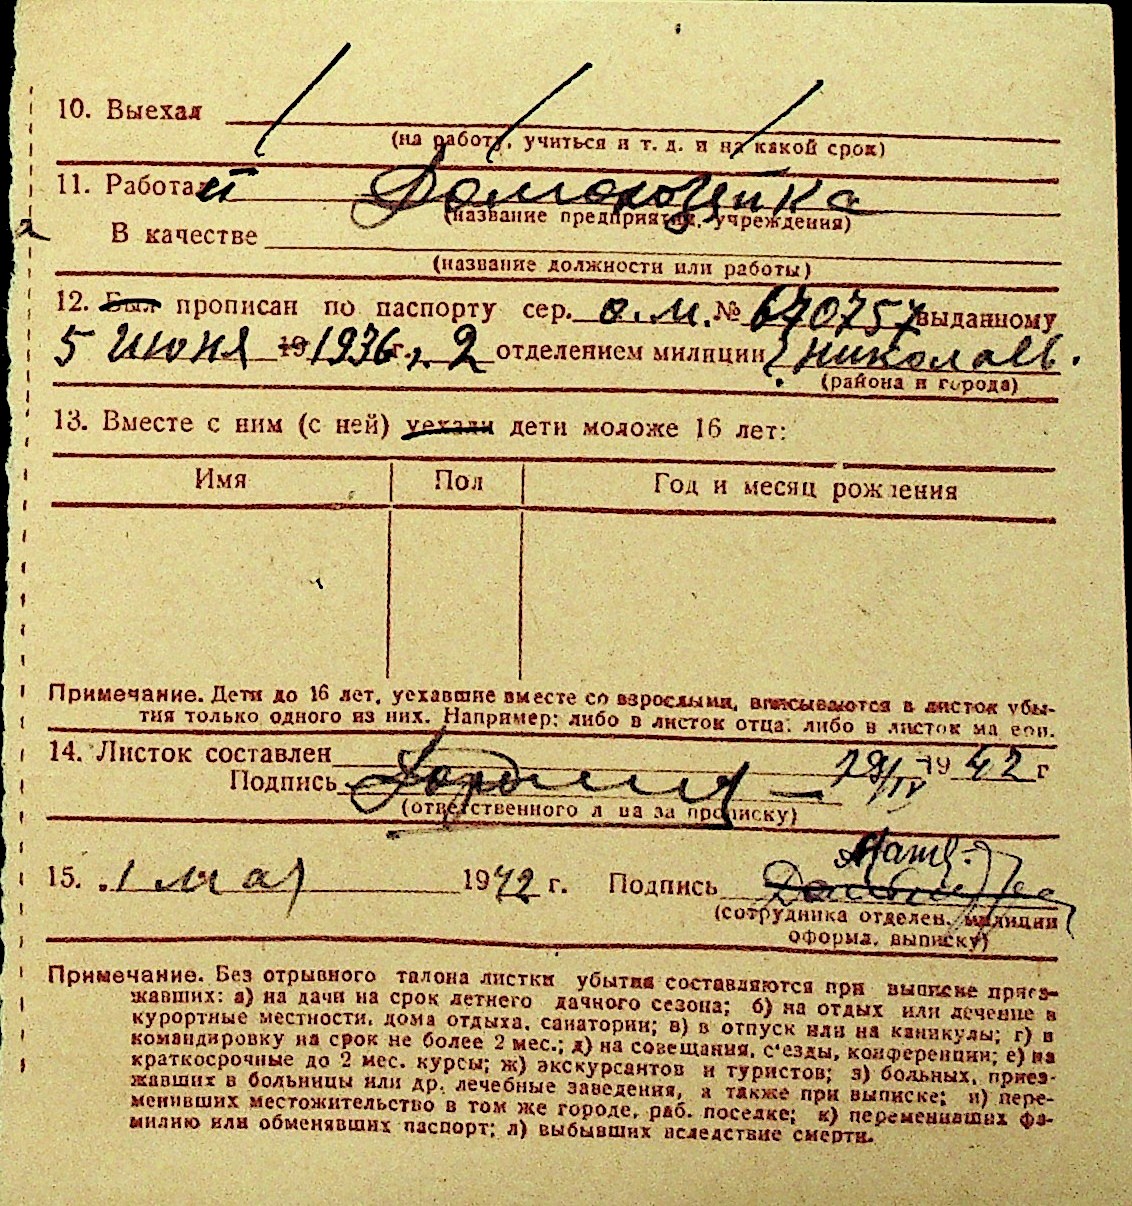 10. Выехал
(на работу, учиться и т. д. и на какой срок)
11. Работает Домохозяйка
(название предприятия, учреждения)
В качестве
(название должности или работы)
12. Был прописан по паспорту сер. о.м. № 640757 выданному
5 июня 19 1936 г., 2 отделением милиции г. Николаев.
(района и города)
13. Вместе с ним (с ней) уехали дети моложе 16 лет:
Имя Пол Год и месяц рождения
Примечание. Дети до 16 лет, уехавшие вместе со взрослыми, вписываются в листок убы-
тия только одного из них. Например: либо в листок отца, либо в листок матери.
14. Листок составлен 29/IV 1942 г
Подпись
(ответственного лица за прописку)
15. 1 мая 1942 г. Подпись
(сотрудника отделен. милиции
оформл. выписку)
Примечание. Без отрывного талона листки убытия составляются при выписке приез-
жавших: а) на дачи на срок летнего дачного сезона; б) на отдых или лечение в
курортные местности, дома отдыха, санатории; в) в отпуск или на каникулы; г) в
командировку на срок не более 2 мес.; д) на совещания, с'езды, конференции; е) на
краткосрочные до 2 мес. курсы; ж) экскурсантов и туристов; з) больных, приез-
жавших в больницы или др. лечебные заведения, а также при выписке; и) пере-
менивших местожительство в том же городе, раб. поселке; к) переменивших фа-
милию или обменявших паспорт; л) выбывших вследствие смерти.